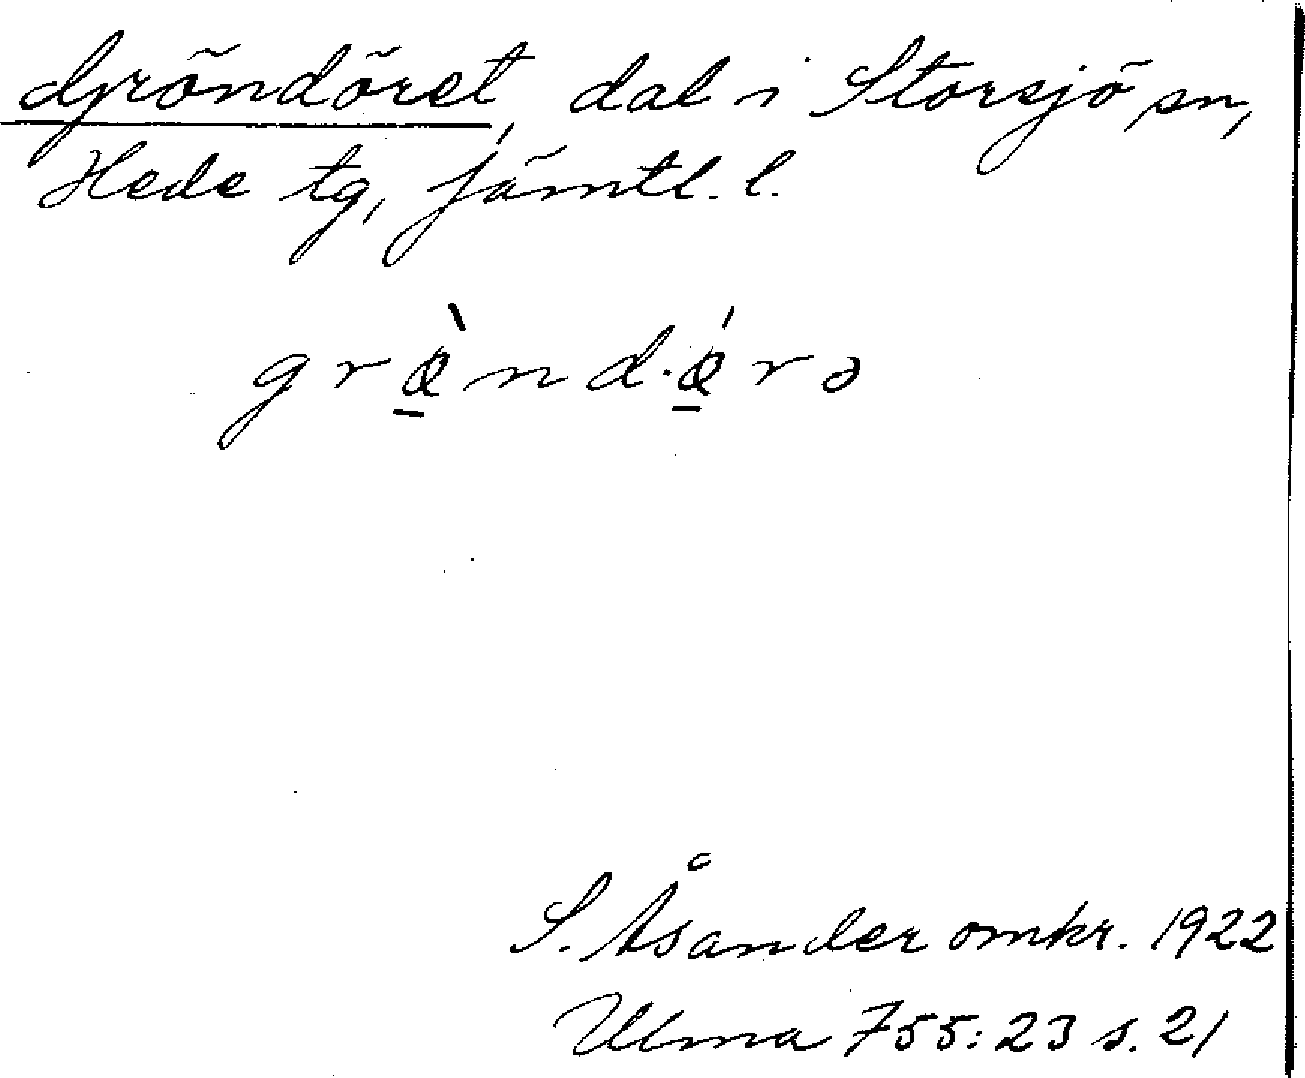 Gröndöret, dal i Storsjö sn,
Hede tg, Jämtl. l.
grø̱̀nd·ǿ̱rə
S. Åsander omkr. 1922
Ulma 755:23 s. 21